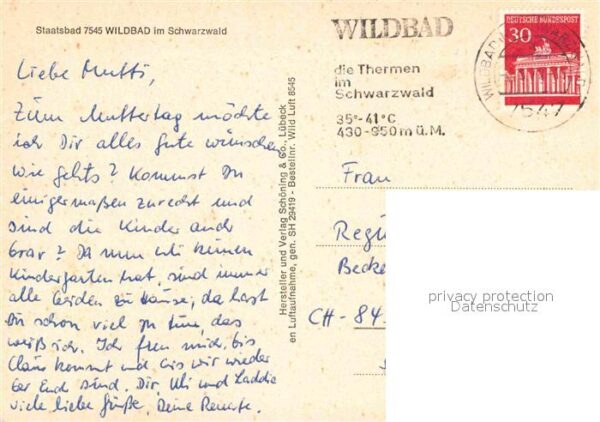 Staatsbad 7545 WILDBAD im Schwarzwald
Liebe Mutti,
Zum Muttertag möchte
ich Dir alles gute wünschen
wie gehts? Kommst Du
einigermaßen zurecht und
sind die Kinder auch
brav? Da nun Uli keinen
Kindergarten hat, sind immer
alle beiden zu Hause, da hast
Du schon viel zu tun, das
weiß ich. Ich freu mich, bis
Claus kommt und bis wir wieder
bei Euch sind. Dir, Uli und
viele liebe Grüße, Deine Renate.
Hersteller und Verlag Schöning & Co., Lübeck
en Luftaufnahme, gen. SH 29419 - Bestellnr. Wild Luft 8545
WILDBAD
die Thermen
im
Schwarzwald
35°-41°C
430-950 m ü.M.
DEUTSCHE BUNDESPOST
30
WILDBAD
7547
Frau
Regi
Becke
CH - 84
privacy protection
Datenschutz